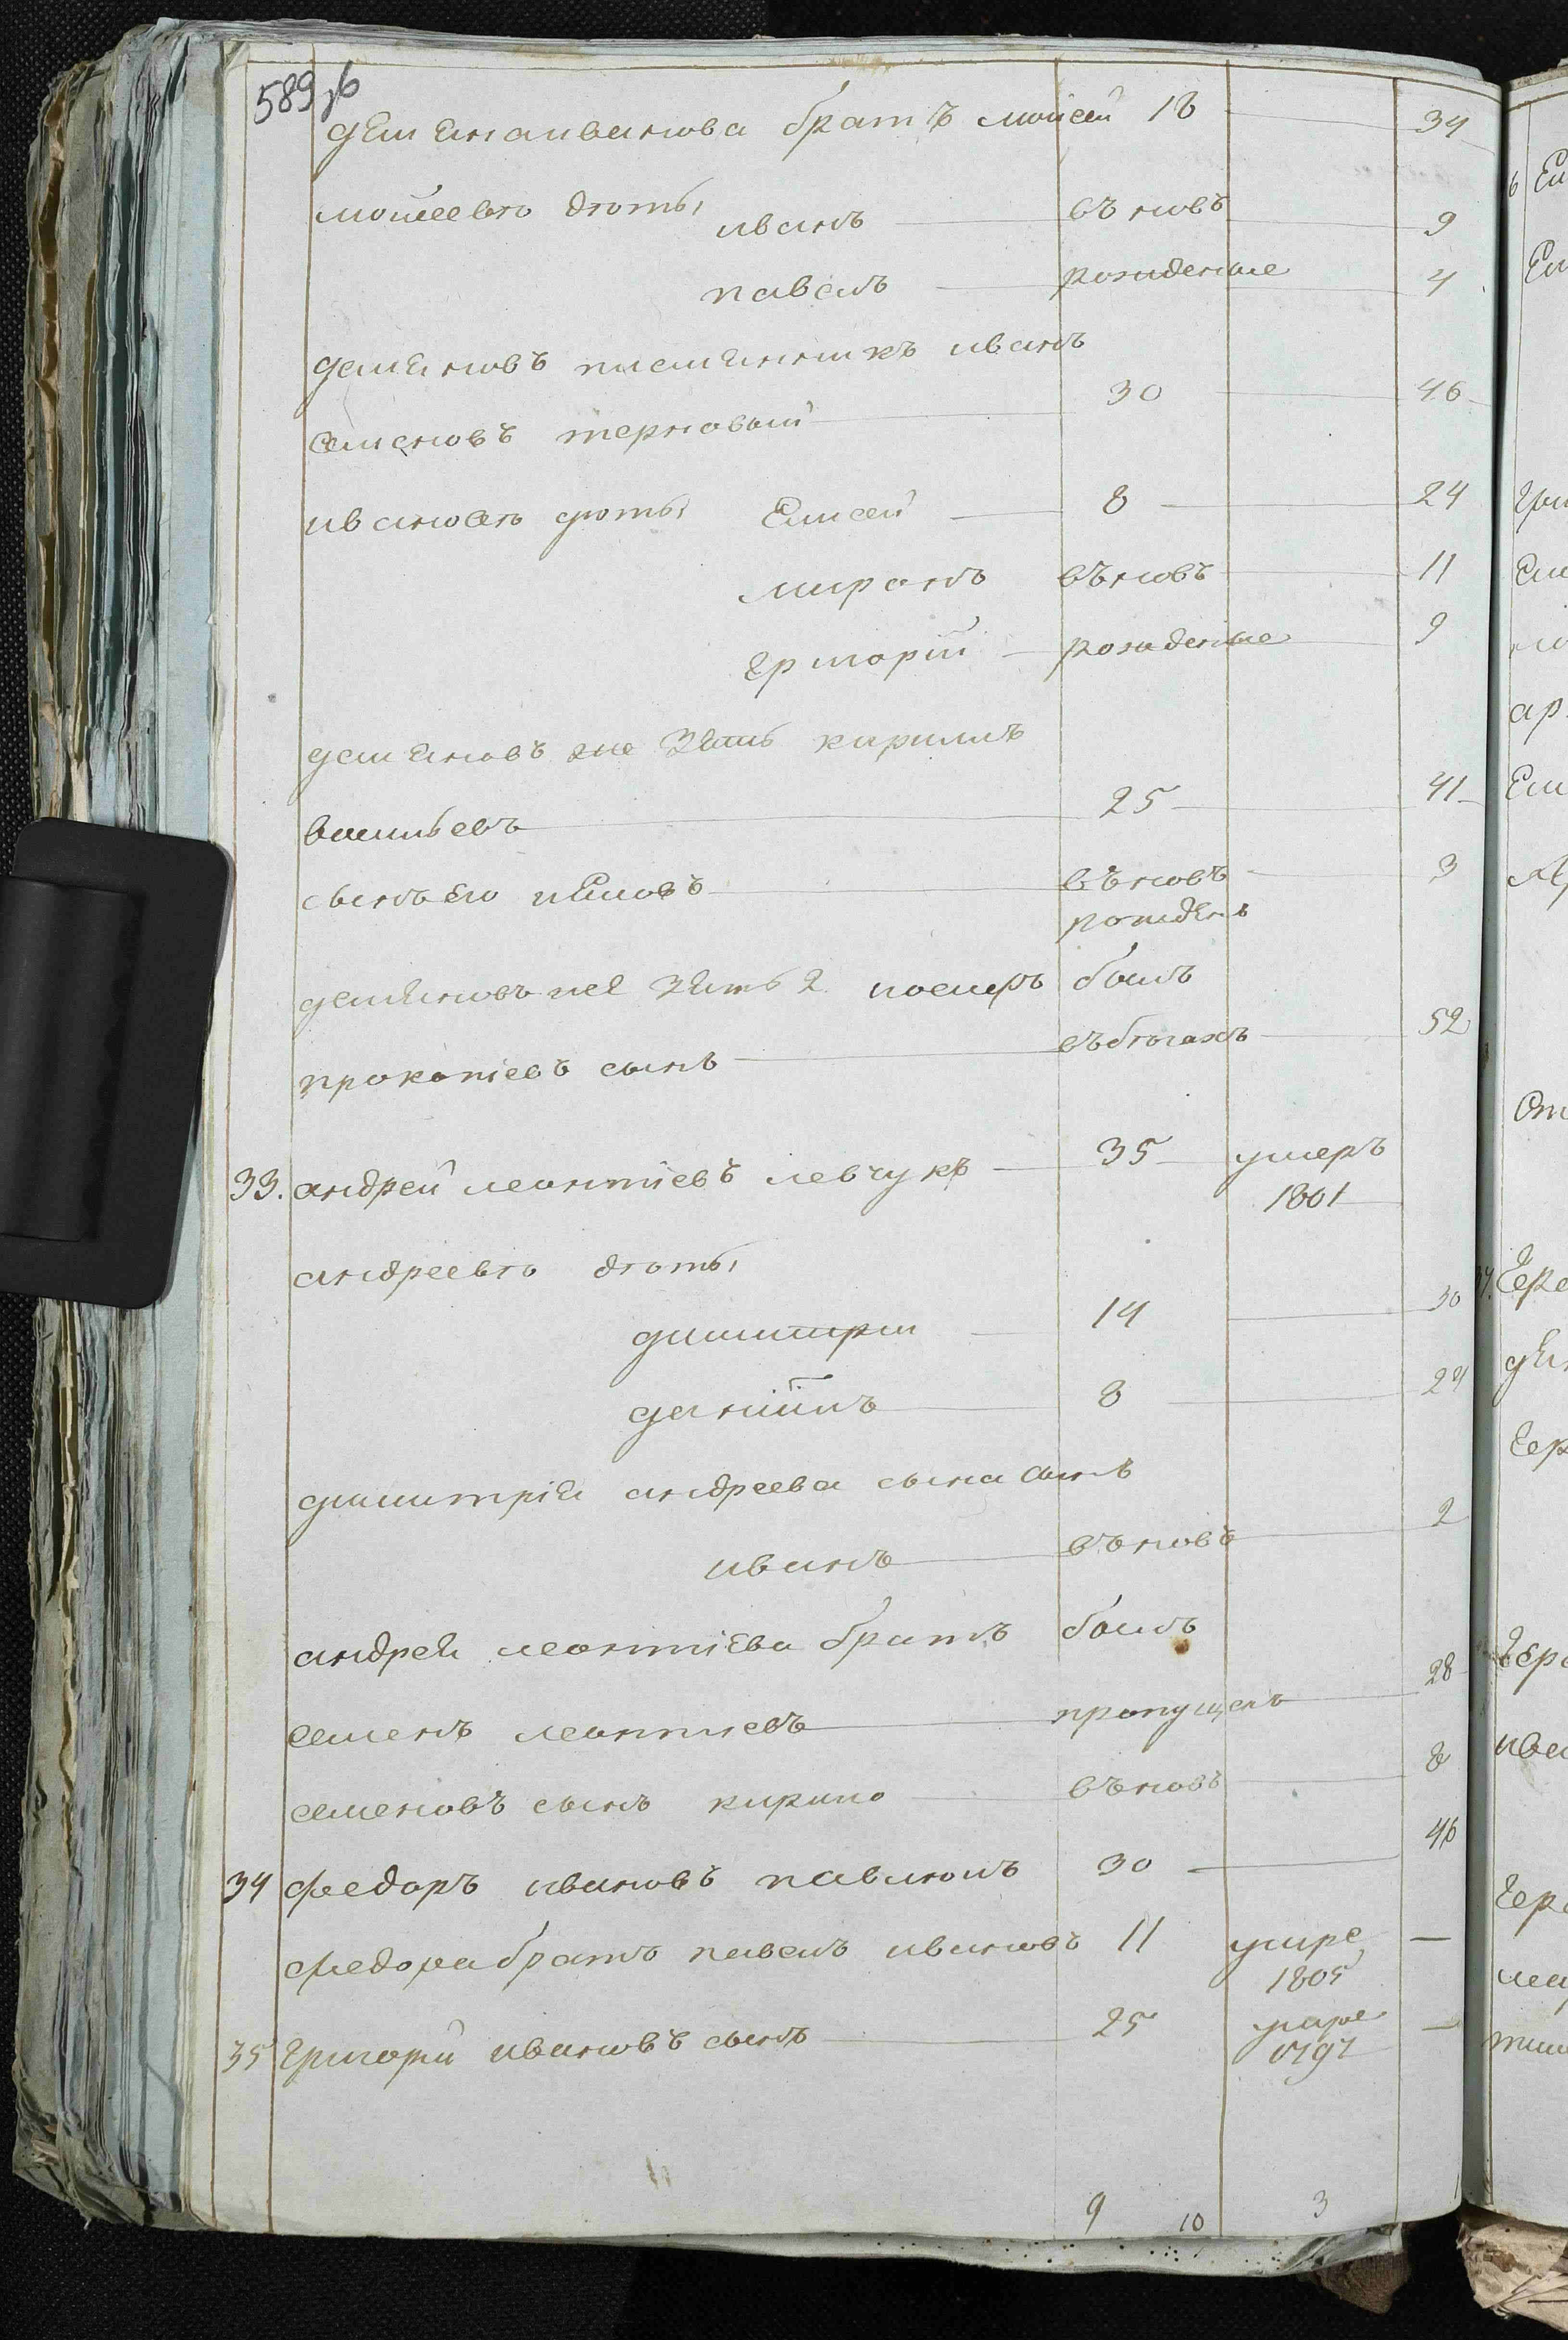 589 зв
демена иванова братъ моисей 18 34
моисеевы дѣты иванъ въновь 9
павелъ рожденые 4
деменовъ племенникъ иванъ
семеновъ терновый 30 46
ивановы дѣты Елисей 8 24
миронъ въновь 11
григорій рожденые 9
деменовъ же зять кирилъ
васильевъ 25 41
сынъ его въновь 3
рожденъ
деменовъ же зять 2 былъ
прокопіевъ сынъ въбѣгахъ 52
33. андрей леонтіевъ левчукъ 35 умеръ
1801
андреевы дѣты
димитри 14 30
даніилъ 8 24
димитрія андреева сына сынъ
иванъ въновь 2
андрея леонтіева братъ былъ
семенъ леонтиевъ пропущенъ 28
семеновъ сынъ кирило въновь 8
34 федоръ ивановъ павлюкъ 30 46
федора братъ павелъ ивановъ 11 умре
1805
35 григорий ивановъ сынъ 25 умре
1797
9 10 3